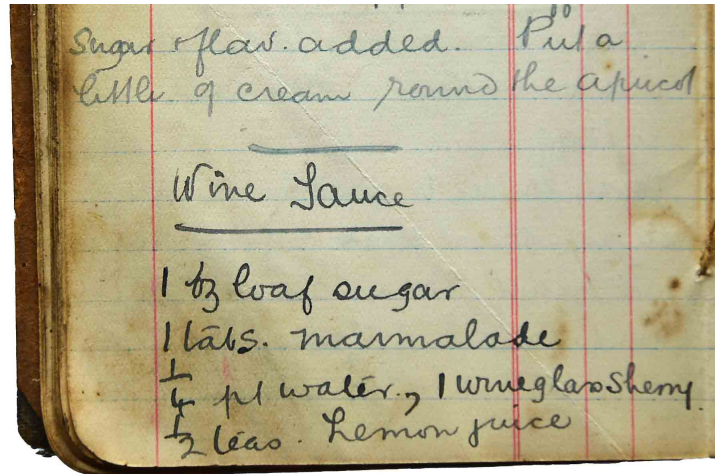 Sugar + flav. added. Put a
little of cream round the apricot
Wine Sauce
1 oz loaf sugar
1 tabs. marmalade
1/4 pt water, 1 wineglass Sherry.
1/2 teas. Lemon juice